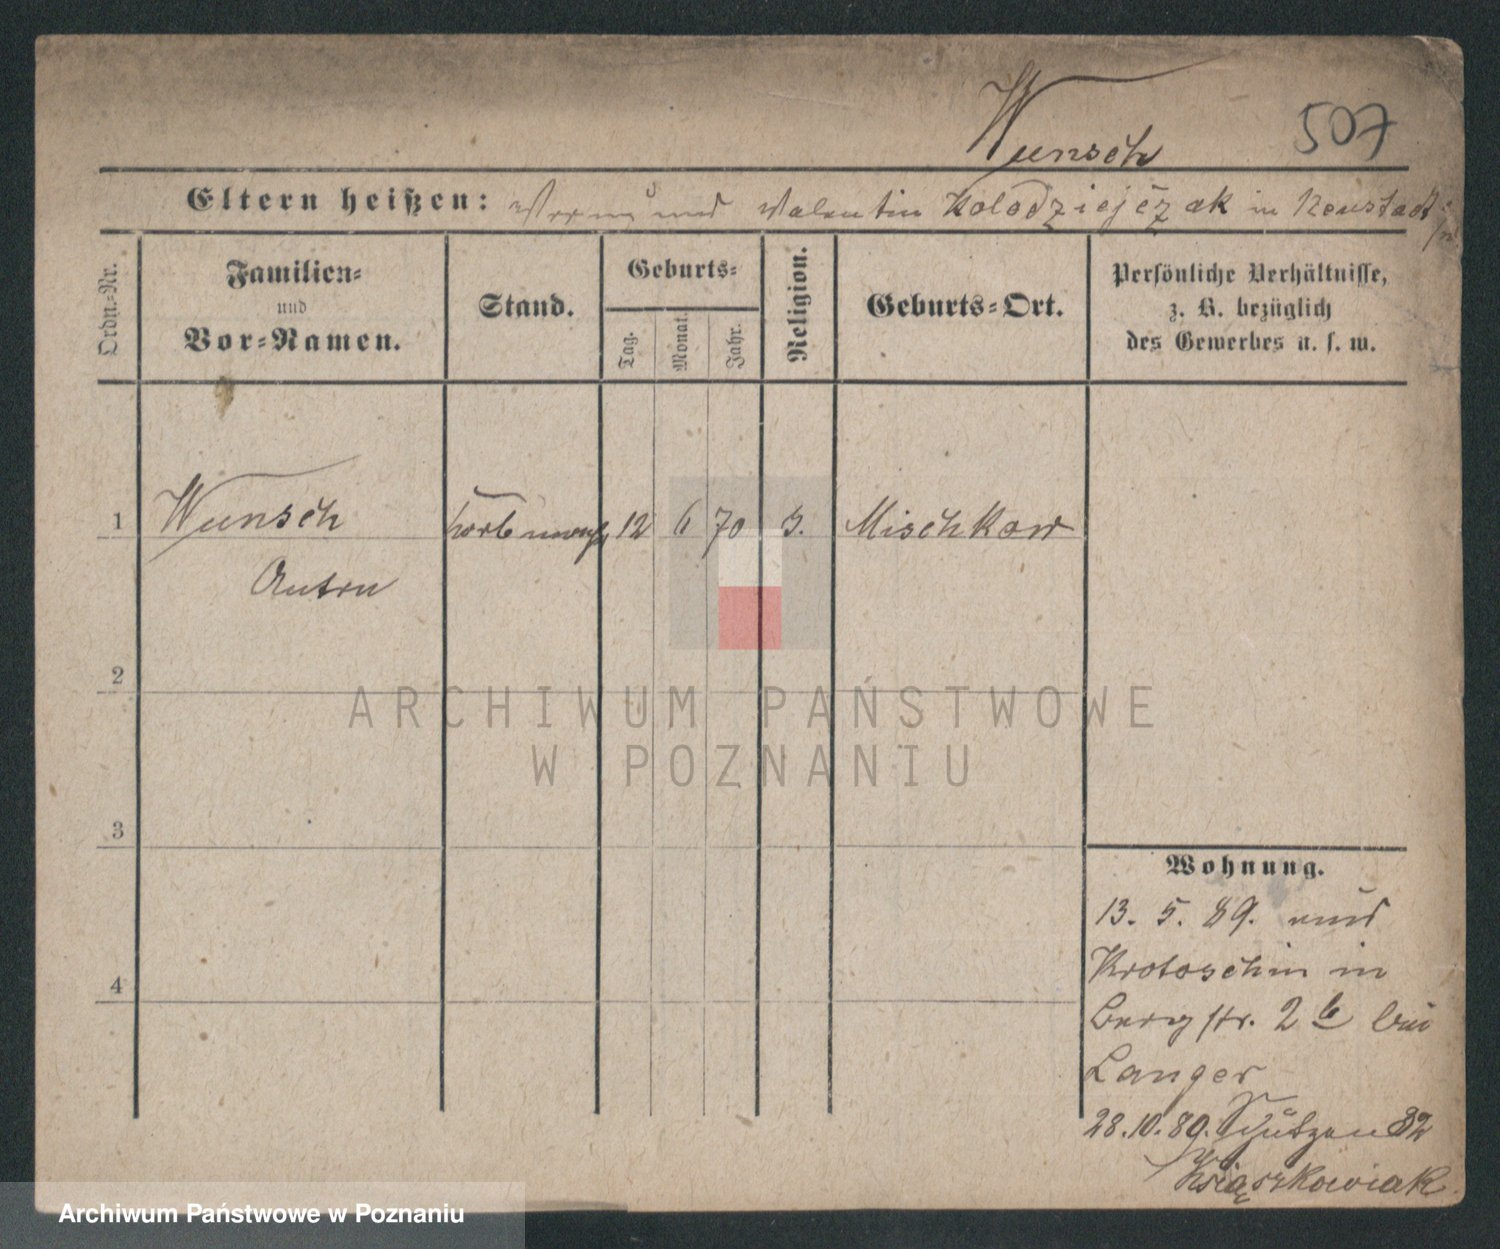 Wunsch 507
Eltern heißen: und Valentin Kolodziejczak in Neustadt
Ordn.-Nr.
Familien-
und
Vor-Namen.
Stand.
Geburts-
Tag.
Monat.
Jahr.
Religion.
Geburts-Ort.
Persönliche Verhältnisse,
z. B. bezüglich
des Gewerbes u. s. w.
1 Wunsch 12 6 70 Mischkow
Anton
2
3
4
ARCHIWUM PAŃSTWOWE
W POZNANIU
Wohnung.
13. 5. 89. aus
Krotoschin in
Bergstr. 2 b bei
Langer
28.10.89. Schützen 32
Książkowiak
Archiwum Państwowe w Poznaniu